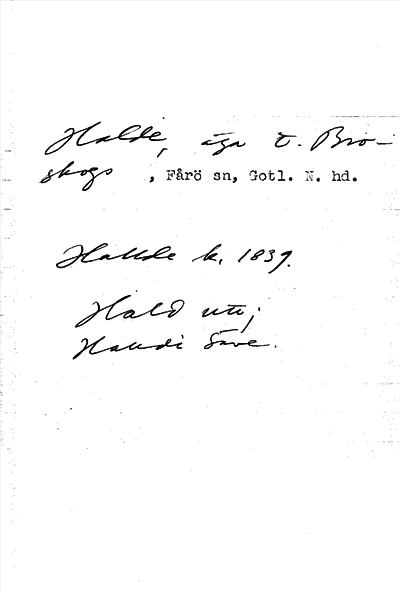 Halde, äga t. Bro-
skogs, Fårö sn, Gotl. N. hd.
Hallde k. 1839.
Hald utt;
Halldi Säve.